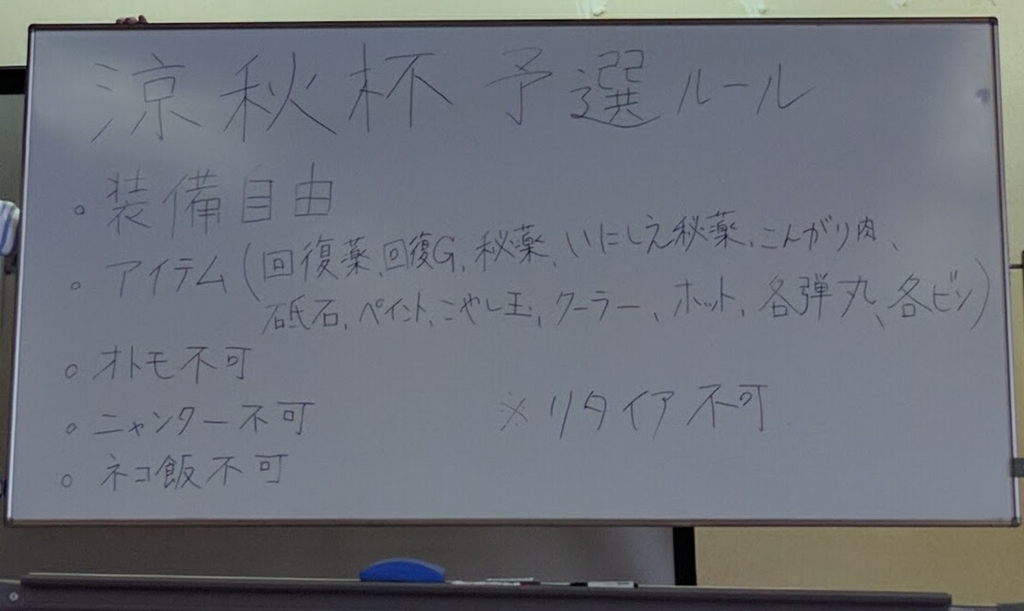 涼秋杯 予選ルール
。装備自由
。アイテム(回復薬、回復G、秘薬、いにしえ秘薬、こんがり肉、
砥石、ペイント、こやし玉、クーラー、ホット、各弾丸、各ビン)
。オトモ不可
。ニャンター不可
※リタイア不可
。ネコ飯不可